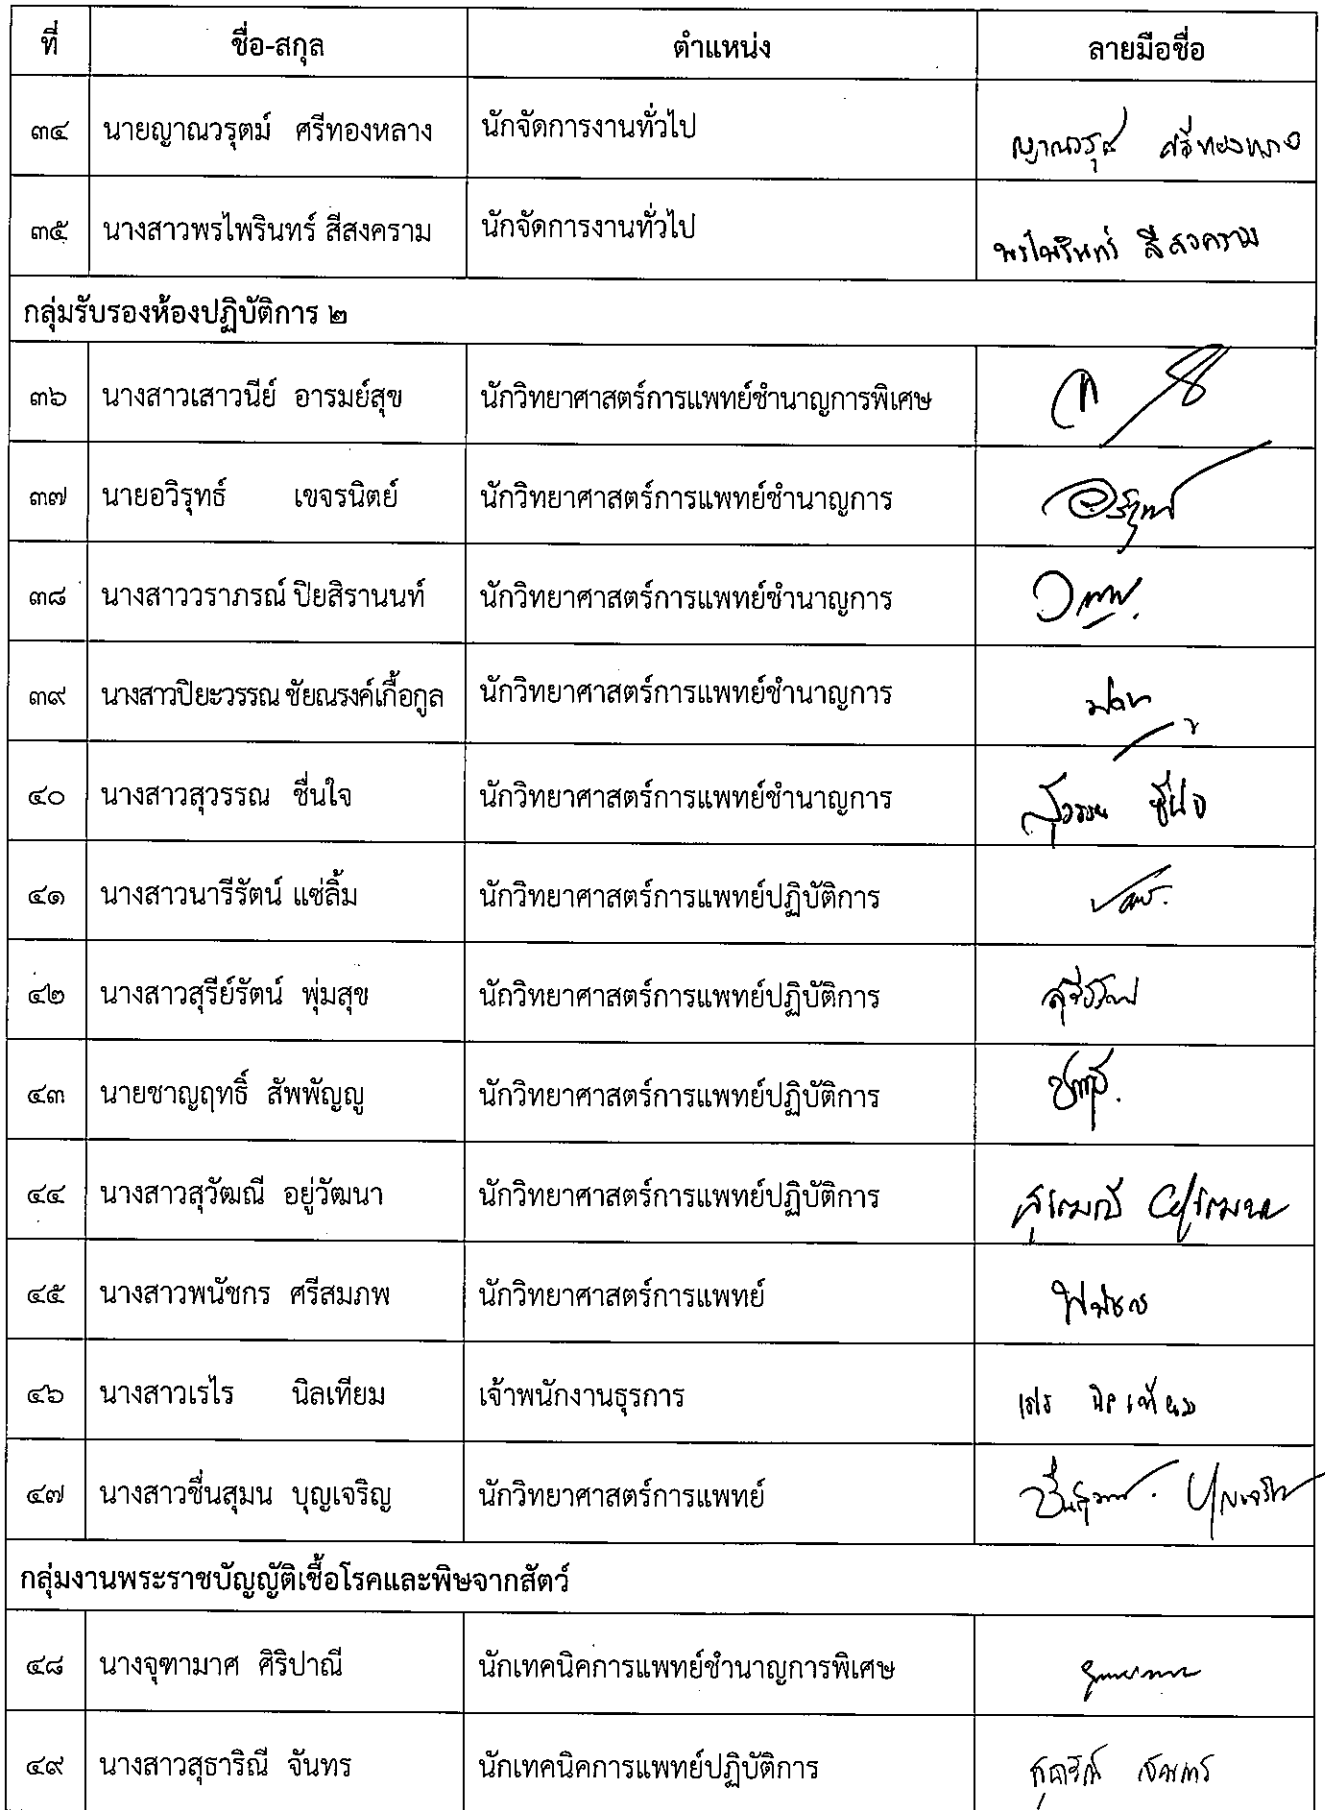 ที่ ชื่อ-สกุล ตำแหน่ง ลายมือชื่อ
๓๔ นายญาณวรุตม์ ศรีทองหลาง นักจัดการงานทั่วไป
๓๕ นางสาวพรไพรินทร์ สีสงคราม นักจัดการงานทั่วไป พรไพรินทร์ สีสงคราม
กลุ่มรับรองห้องปฏิบัติการ ๒
๓๖ นางสาวเสาวนีย์ อารมย์สุข นักวิทยาศาสตร์การแพทย์ชำนาญการพิเศษ
๓๗ นายอวิรุทธ์ เขจรนิตย์ นักวิทยาศาสตร์การแพทย์ชำนาญการ
๓๘ นางสาววราภรณ์ ปิยสิรานนท์ นักวิทยาศาสตร์การแพทย์ชำนาญการ
๓๙ นางสาวปิยะวรรณ ชัยณรงค์เกื้อกูล นักวิทยาศาสตร์การแพทย์ชำนาญการ
๔๐ นางสาวสุวรรณ ชื่นใจ นักวิทยาศาสตร์การแพทย์ชำนาญการ สุวรรณ ชื่นใจ
๔๑ นางสาวนารีรัตน์ แซ่ลิ้ม นักวิทยาศาสตร์การแพทย์ปฏิบัติการ
๔๒ นางสาวสุรีย์รัตน์ พุ่มสุข นักวิทยาศาสตร์การแพทย์ปฏิบัติการ
๔๓ นายชาญฤทธิ์ สัพพัญญู นักวิทยาศาสตร์การแพทย์ปฏิบัติการ
๔๔ นางสาวสุวัฒณี อยู่วัฒนา นักวิทยาศาสตร์การแพทย์ปฏิบัติการ
๔๕ นางสาวพนัชกร ศรีสมภพ นักวิทยาศาสตร์การแพทย์
๔๖ นางสาวเรไร นิลเทียม เจ้าพนักงานธุรการ เรไร นิลเทียม
๔๗ นางสาวชื่นสุมน บุญเจริญ นักวิทยาศาสตร์การแพทย์
กลุ่มงานพระราชบัญญัติเชื้อโรคและพิษจากสัตว์
๔๘ นางจุฑามาศ ศิริปาณี นักเทคนิคการแพทย์ชำนาญการพิเศษ
๔๙ นางสาวสุธาริณี จันทร นักเทคนิคการแพทย์ปฏิบัติการ